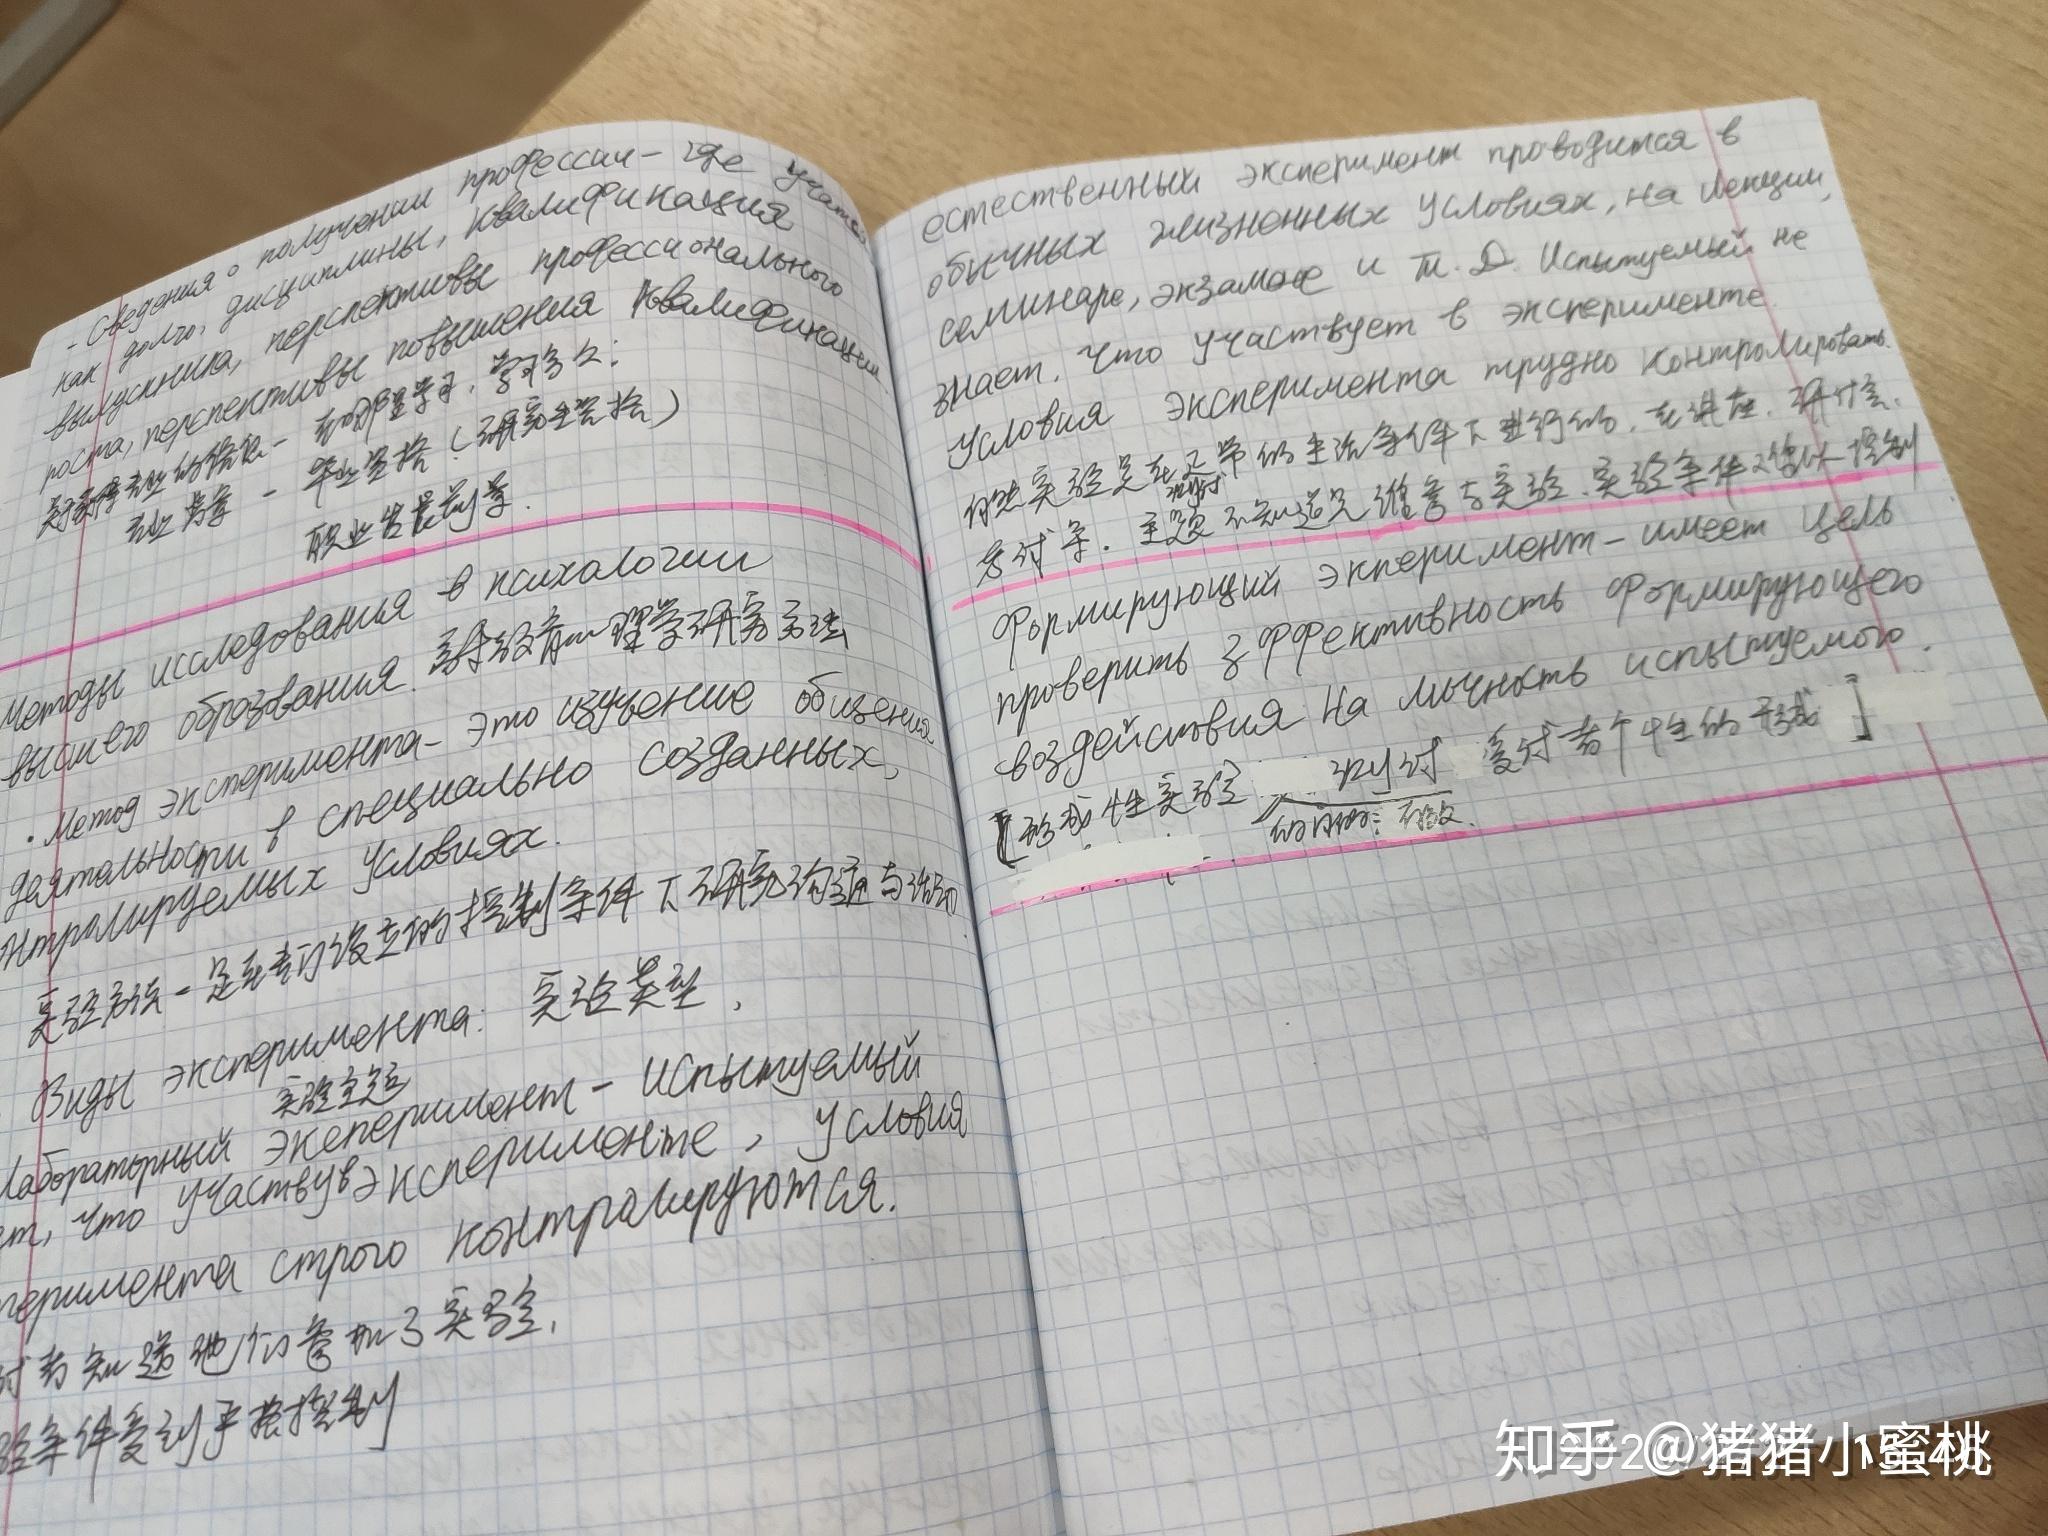 - Сведения о получении профессии - где учатся
как долго, дисциплины, квалификация
выпускника, перспективы профессионального
роста, перспективы повышения квалификации
专业的信息 - 在哪里学习, 学习多久;
专业 - 毕业资格 (研究生资格)
职业发展前景.
Методы исследования в психологии
высшего образования. 高等教育心理学研究方法
· Метод эксперимента - это изучение общения
деятельности в специально созданных,
нтролируемых условиях.
实验方法 - 是在专门设立的控制条件下研究沟通与活动
Виды эксперимента: 实验类型,
实验室
Лабораторный экеперимент - испытуемый
ет, что участвув эксперименте, условия
перимента строго контролируются.
试者知道他们参加了实验,
验条件受到严格控制
естественный эксперимент проводится в
обычных жизненных условиях, на лекции,
семинаре, экзамене и т.д. Испытуемый не
знает, что участвует в эксперименте.
Условия эксперимента трудно контролировать.
自然实验是在正常的生活条件下进行的, 在讲座, 研讨会,
考试等. 不知道是谁参与实验, 实验条件难以控制
Формирующий экперимент - имеет цель
проверить эффективность формирующего
воздействия на личность испытуемого.
[形成性实验 测试 受试者个性的形成]
的目的: 有效.
知乎 @猪猪小蜜桃